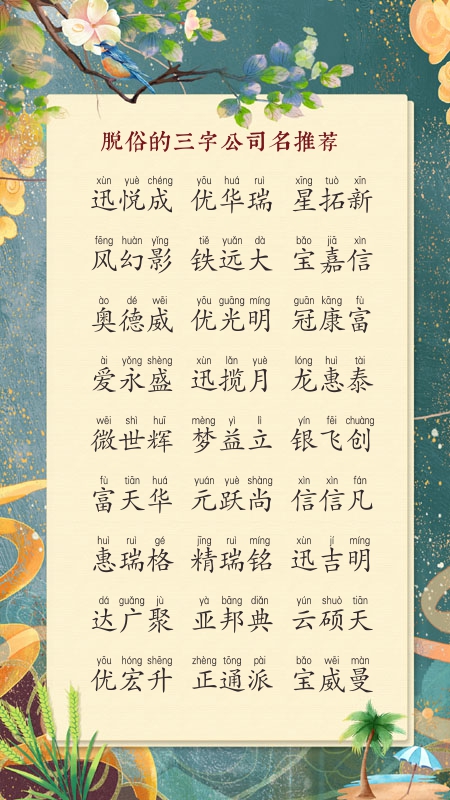 脱俗的三字公司名推荐
xùn yuè chéng yōu huá ruì xīng tuò xīn
迅悦成 优华瑞 星拓新
fēng huàn yǐng tiě yuǎn dà bǎo jiā xìn
风幻影 铁远大 宝嘉信
ào dé wēi yōu guāng míng guān kāng fù
奥德威 优光明 冠康富
ài yǒng shèng xùn lǎn yuè lóng huì tài
爱永盛 迅揽月 龙惠泰
wēi shì huī mèng yì lì yín fēi chuàng
微世辉 梦益立 银飞创
fù tiān huá yuán yuè shàng xìn xìn fán
富天华 元跃尚 信信凡
huì ruì gé jīng ruì míng xùn jí míng
惠瑞格 精瑞铭 迅吉明
dá guǎng jù yà bāng diǎn yún shuò tiān
达广聚 亚邦典 云硕天
yōu hóng shēng zhèng tōng pài bǎo wēi màn
优宏升 正通派 宝威曼